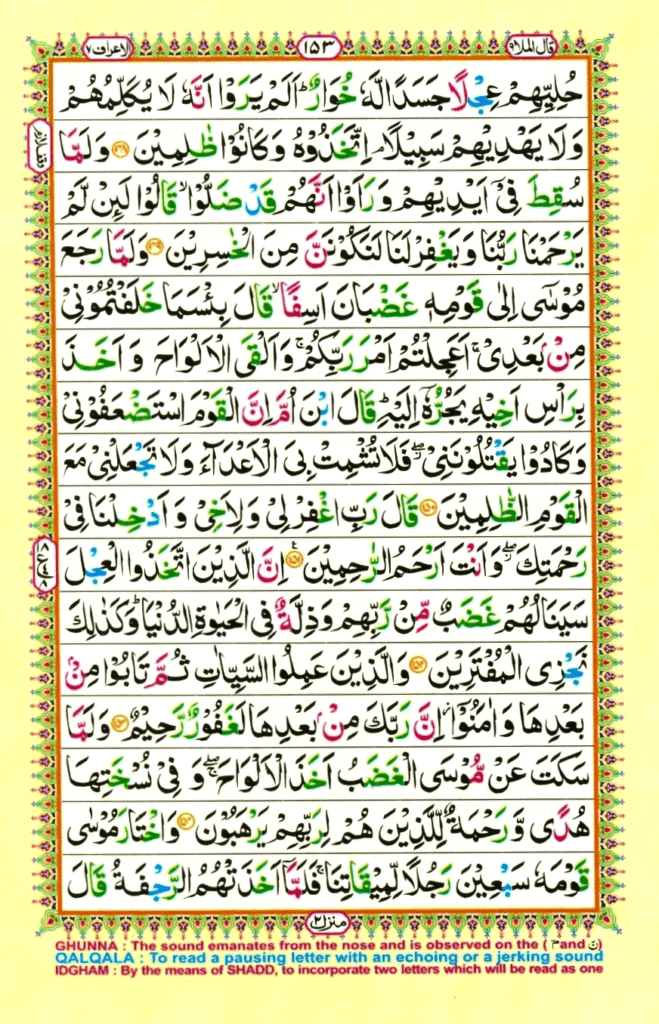 قال الملا ٩
١٥٣
الاعراف ٧
حُلِيِّهِمْ عِجْلًا جَسَدًا لَّهٗ خُوَارٌ ؕ اَلَمْ يَرَوْا اَنَّهٗ لَا يُكَلِّمُهُمْ
وَلَا يَهْدِيْهِمْ سَبِيْلًا ۘ اِتَّخَذُوْهُ وَكَانُوْا ظٰلِمِيْنَ ﴿۱۴۸﴾ وَلَمَّا
سُقِطَ فِيْۤ اَيْدِيْهِمْ وَرَاَوْا اَنَّهُمْ قَدْ ضَلُّوْا ۙ قَالُوْا لَئِنْ لَّمْ
يَرْحَمْنَا رَبُّنَا وَيَغْفِرْ لَنَا لَنَكُوْنَنَّ مِنَ الْخٰسِرِيْنَ ﴿۱۴۹﴾ وَلَمَّا رَجَعَ
مُوْسٰۤى اِلٰى قَوْمِهٖ غَضْبَانَ اَسِفًا ۙ قَالَ بِئْسَمَا خَلَفْتُمُوْنِيْ
مِنْۢ بَعْدِيْ ۚ اَعَجِلْتُمْ اَمْرَ رَبِّكُمْ ۚ وَاَلْقَى الْاَلْوَاحَ وَاَخَذَ
بِرَاْسِ اَخِيْهِ يَجُرُّهٗۤ اِلَيْهِ ؕ قَالَ ابْنَ اُمَّ اِنَّ الْقَوْمَ اسْتَضْعَفُوْنِيْ
وَكَادُوْا يَقْتُلُوْنَنِيْ ۖ فَلَا تُشْمِتْ بِيَ الْاَعْدَآءَ وَلَا تَجْعَلْنِيْ مَعَ
الْقَوْمِ الظّٰلِمِيْنَ ﴿۱۵۰﴾ قَالَ رَبِّ اغْفِرْ لِيْ وَلِاَخِيْ وَاَدْخِلْنَا فِيْ
رَحْمَتِكَ ۖ وَاَنْتَ اَرْحَمُ الرّٰحِمِيْنَ ﴿۱۵۱﴾ اِنَّ الَّذِيْنَ اتَّخَذُوا الْعِجْلَ
سَيَنَالُهُمْ غَضَبٌ مِّنْ رَّبِّهِمْ وَذِلَّةٌ فِي الْحَيٰوةِ الدُّنْيَا ؕ وَكَذٰلِكَ
نَجْزِي الْمُفْتَرِيْنَ ﴿۱۵۲﴾ وَالَّذِيْنَ عَمِلُوا السَّيِّاٰتِ ثُمَّ تَابُوْا مِنْۢ
بَعْدِهَا وَاٰمَنُوْۤا ۚ اِنَّ رَبَّكَ مِنْۢ بَعْدِهَا لَغَفُوْرٌ رَّحِيْمٌ ﴿۱۵۳﴾ وَلَمَّا
سَكَتَ عَنْ مُّوْسَى الْغَضَبُ اَخَذَ الْاَلْوَاحَ ۖ وَفِيْ نُسْخَتِهَا
هُدًى وَّرَحْمَةٌ لِّلَّذِيْنَ هُمْ لِرَبِّهِمْ يَرْهَبُوْنَ ﴿۱۵۴﴾ وَاخْتَارَ مُوْسٰى
قَوْمَهٗ سَبْعِيْنَ رَجُلًا لِّمِيْقَاتِنَا ۚ فَلَمَّاۤ اَخَذَتْهُمُ الرَّجْفَةُ قَالَ
منزل ٢
GHUNNA : The sound emanates from the nose and is observed on the ( م and ن )
QALQALA : To read a pausing letter with an echoing or a jerking sound
IDGHAM : By the means of SHADD, to incorporate two letters which will be read as one